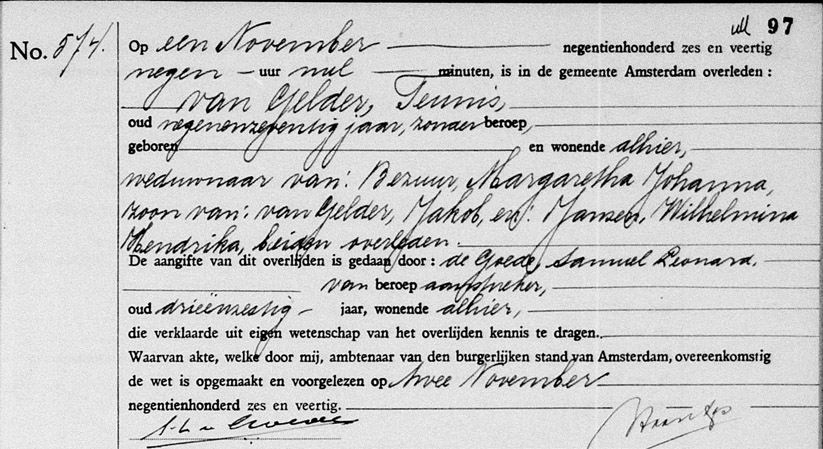 97
No. 574. Op een November negentienhonderd zes en veertig
negen uur nul minuten, is in de gemeente Amsterdam overleden :
van Gelder, Teunis,
oud negenenzeventig jaar, zonder beroep,
geboren en wonende alhier,
weduwnaar van: Bezuur, Margaretha Johanna,
zoon van: van Gelder, Jakob, en: Jansen, Wilhelmina
Hendrika, beiden overleden.
De aangifte van dit overlijden is gedaan door : de Goede, Samuel Leonard.
van beroep aanspreker,
oud drieënzestig jaar, wonende alhier,
die verklaarde uit eigen wetenschap van het overlijden kennis te dragen.
Waarvan akte, welke door mij, ambtenaar van den burgerlijken stand van Amsterdam, overeenkomstig
de wet is opgemaakt en voorgelezen op twee November
negentienhonderd zes en veertig.